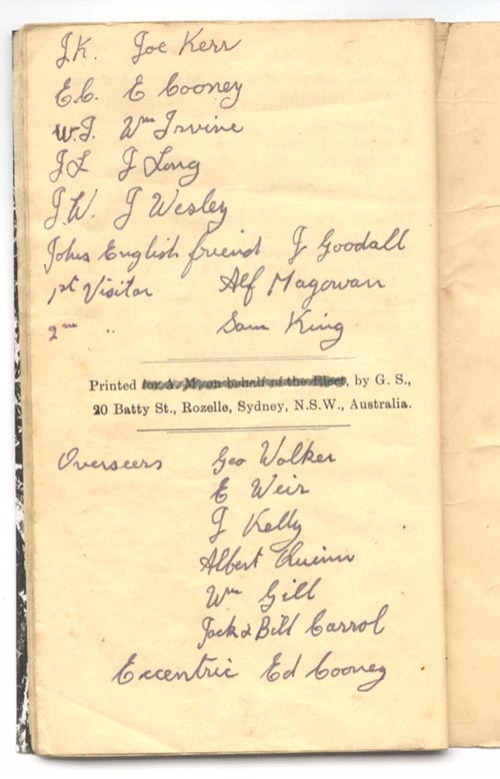 J.K. Joe Kerr
E.C. E Cooney
W.I. Wm Irvine
J L J Long
J.W. J Wesley
Johns English friend J Goodall
1st Visitor Alf Magowan
2nd " Sam King
Printed for A. M, on behalf of the Elect, by G. S.,
20 Batty St., Rozelle, Sydney, N.S.W., Australia.
Overseers Geo Walker
E Weir
J Kelly
Albert Quinn
Wm Gill
Jack & Bill Carrol
Eccentric Ed Cooney